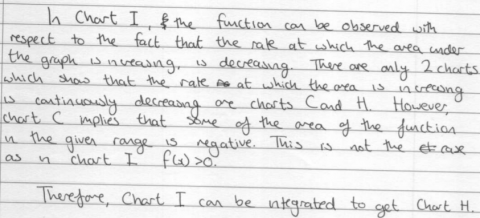 In Chart I, the function can be observed with
respect to the fact that the rate at which the area under
the graph is increasing, is decreasing. There are only 2 charts
which show that the rate at which the area is increasing
is continuously decreasing are charts C and H. However,
chart C implies that some of the area of the function
in the given range is negative. This is not the case
as in chart I f(x)>0.
Therefore, Chart I can be integrated to get Chart H.